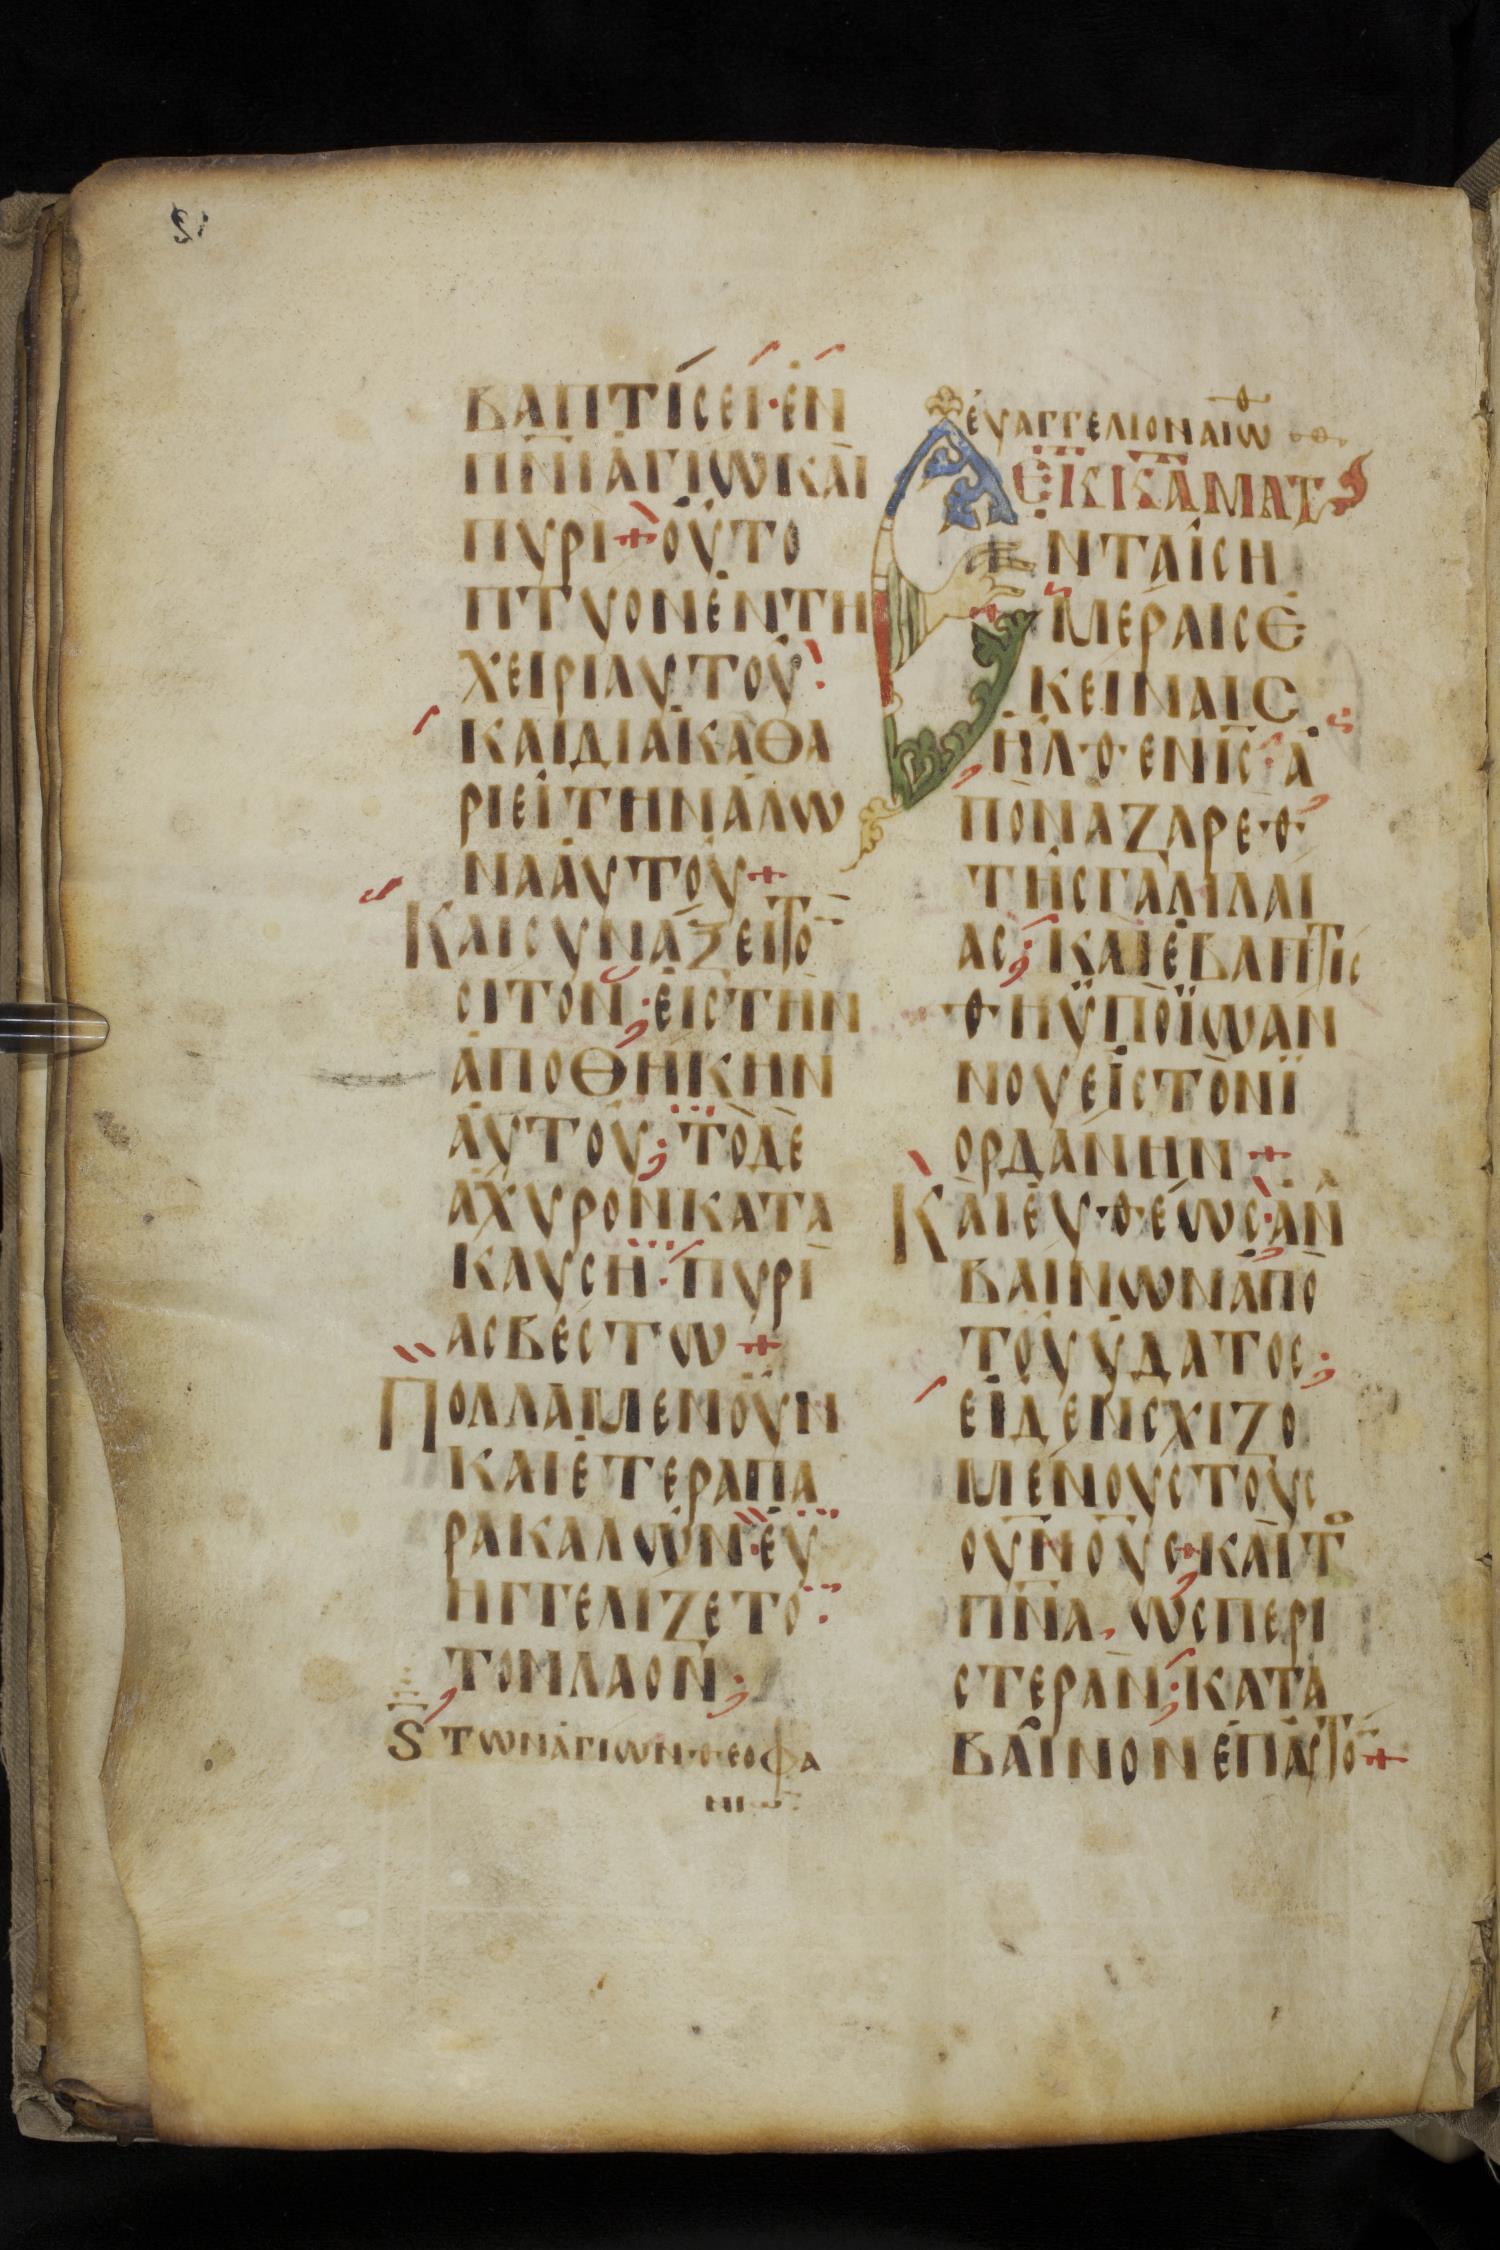 ΒΑΠΤΙΣΕΙ·ΕΝ
ΠΝΙΑΓΙΩΚΑΙ
ΠΥΡΙ+ΟΥΤΟ
ΠΤΥΟΝΕΝΤΗ
ΧΕΙΡΙΑΥΤΟΥ:
ΚΑΙΔΙΑΚΑΘΑ
ΡΙΕΙΤΗΝΑΛΩ
ΝΑΑΥΤΟΥ+
ΚΑΙΣΥΝΑΞΕΙΤΟ
ΣΙΤΟΝ·ΕΙΣΤΗΝ
ΑΠΟΘΗΚΗΝ
ΑΥΤΟΥ;ΤΟΔΕ
ΑΧΥΡΟΝΚΑΤΑ
ΚΑΥΣΗ:ΠΥΡΙ
ΑΣΒΕΣΤΩ+
ΠΟΛΛΑΜΕΝΟΥΝ
ΚΑΙΕΤΕΡΑΠΑ
ΡΑΚΑΛΩΝ·ΕΥ
ΗΓΓΕΛΙΖΕΤΟ
ΤΟΝΛΑΟΝ;
Ϛ ΤΩΝΑΓΙΩΝ·Θ·ΕΟΦΑ
ΝΙΩ
ΕΥΑΓΓΕΛΙΟΝΑΙΩΘ
ΕΚΚΑΜΑΤ
ΕΝΤΑΙΣΗ
ΜΕΡΑΙΣΕ
ΚΕΙΝΑΙΣ
ΗΛ·Θ·ΕΝΙΣ·Α
ΠΟΝΑΖΑΡΕ·Θ·
ΤΗΣΓΑΛΙΛΑΙ
ΑΣ;ΚΑΙΕΒΑΠΤΙΣ
ΘΗΫΠΟΪΩΑΝ
ΝΟΥΕΙΣΤΟΝΪ
ΟΡΔΑΝΗΝ+
ΚΑΙΕΥ·Θ·ΕΩΣ·ΑΝ
ΒΑΙΝΩΝΑΠΟ
ΤΟΥΥΔΑΤΟΣ;
ΕΙΔΕΝΣΧΙΖΟ
ΜΕΝΟΥΣΤΟΥΣ
ΟΥΝΟΥΣ+ΚΑΙΤΟ
ΠΝΑ,ΩΣΠΕΡΙ
ΣΤΕΡΑΝ;ΚΑΤΑ
ΒΑΙΝΟΝΕΠΑΥΤΟ+